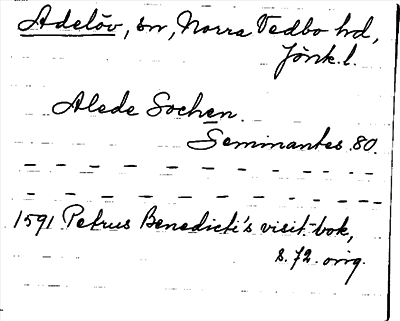 Adelöv, sn, Norra Vedbo hd,
Jönk. l.
Alede Sochen.
Seminantes 80.
1591 Petrus Benedicti's visit.-bok,
s. 72. orig.